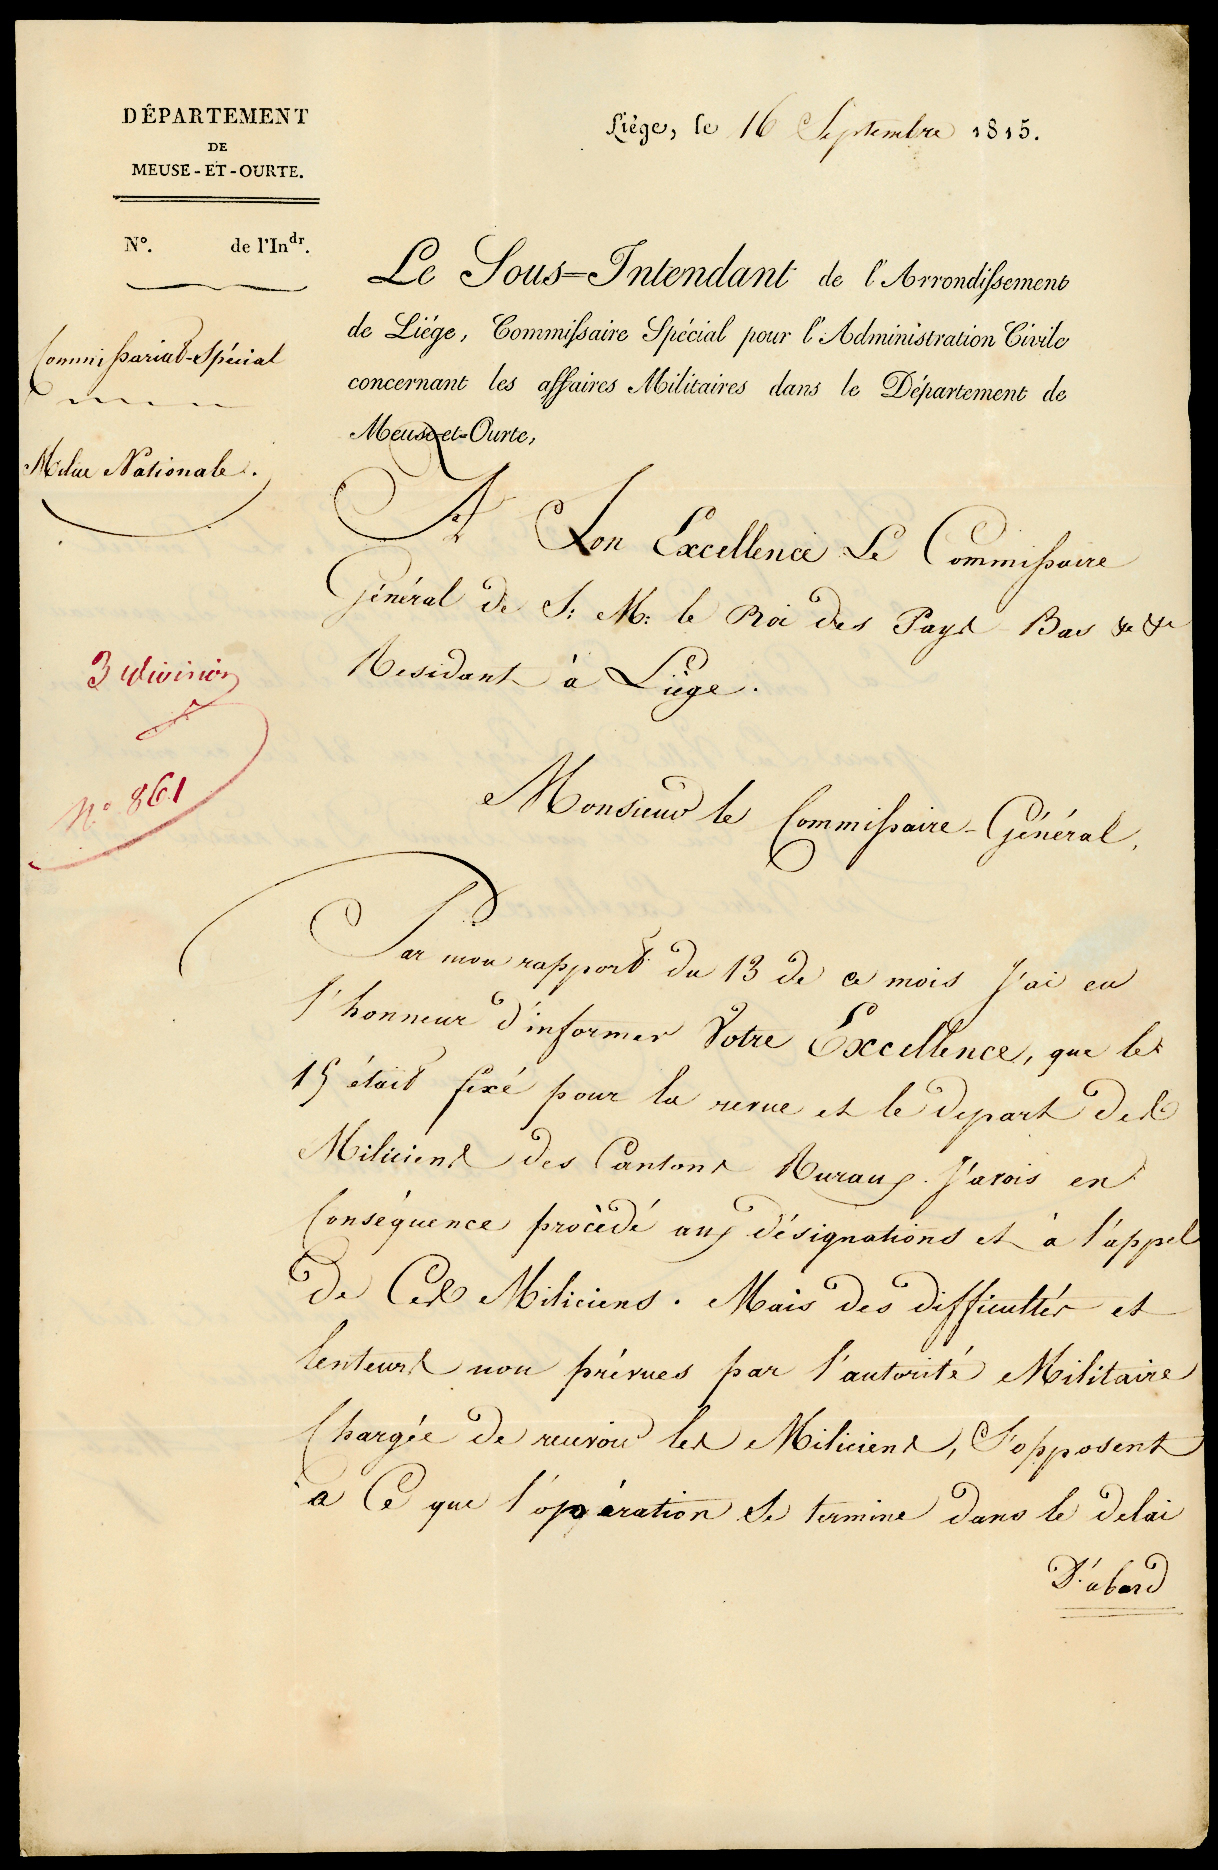 DÉPARTEMENT
DE
MEUSE-ET-OURTE.
N°. de l'Indr.
Commissariat-Spécial
Milice Nationale.
3 division
N° 861
Liége, le 16 Septembre 1815.
Le Sous-Intendant de l'Arrondissement
de Liége, Commissaire Spécial pour l'Administration Civile
concernant les affaires Militaires dans le Département de
Meuse-et-Ourte,
A Son Excellence Le Commissaire
Général de S: M: le Roi des Pays Bas &a &a
Residant à Liège.
Monsieur le Commissaire-Général,
Par mon rapport du 13 de ce mois J'ai eu
l'honneur d'informer Votre Excellence, que le
15 était fixé pour la revue et le depart des
Miliciens des Cantons Ruraux. J'avois en
Conséquence procédé aux désignations et à l'appel
de Ces Miliciens. Mais des difficultés et
lenteurs non prévues par l'autorité Militaire
Chargée de recevoir les Miliciens, S'opposent
à Ce que l'opération Se termine dans le delai
D'abord